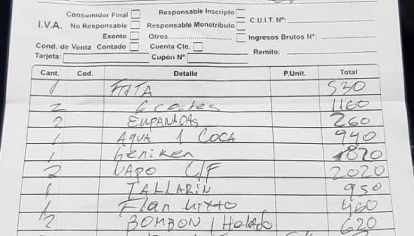 Consumidor Final
Responsable Inscripto
C.U.I.T. Nº:
I.V.A. No Responsable
Responsable Monotributo
Exento
Otros
Ingresos Brutos Nº:
Cond. de Venta Contado
Cuenta Cte.
Remito:
Tarjeta:
Cupón Nº
Cant. Cod. Detalle P.Unit. Total
1 530
2 1160
2 EMPANADAS 260
1 AGUA 1 COCA 940
1 Heniken 820
2 VAPO C/F 2020
1 TALLARIN 950
1 Flan mixto 460
2 BOMBON / Helado 620